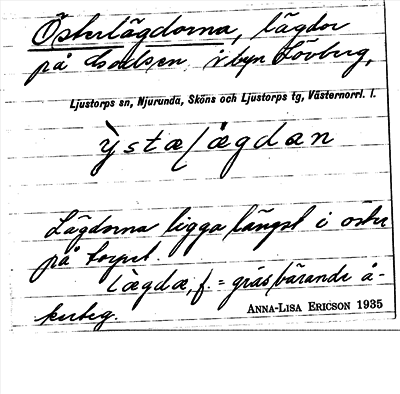 Österlägdorna, lägdor
på i byn Lövberg,
Ljustorps sn, Njurunda, Sköns och Ljustorps tg, Västernorrl. l.
ỳstælægdan
Lägdorna ligga längst i öster
på torpet.
lægdæ, f. = gräsbärande å-
kerteg.
ANNA-LISA ERICSON 1935